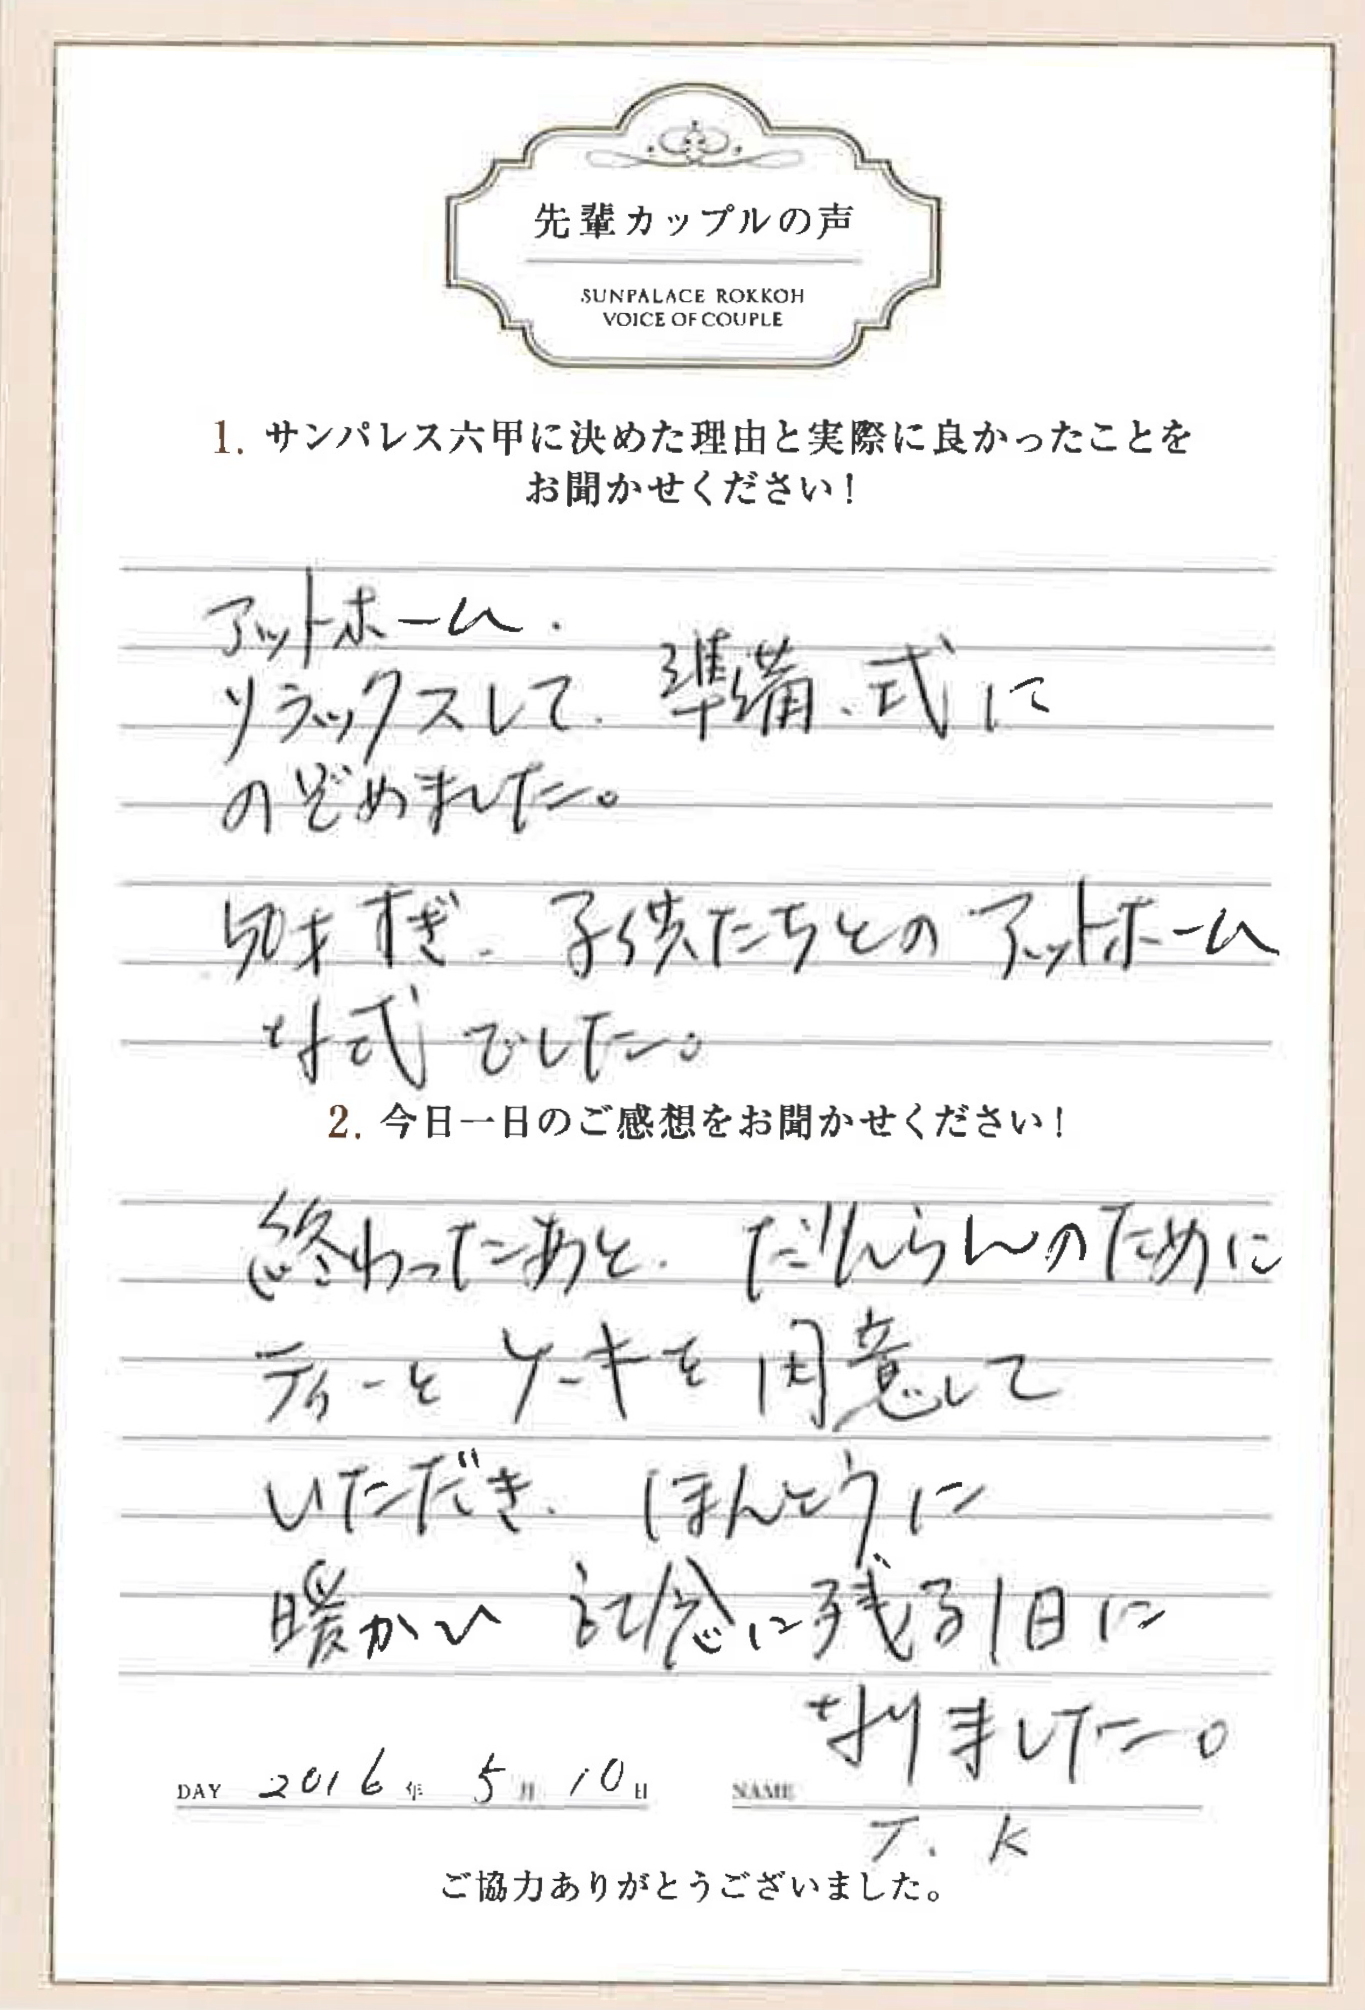 先輩カップルの声
SUNPALACE ROKKOH
VOICE OF COUPLE
1. サンパレス六甲に決めた理由と実際に良かったことを
お聞かせください！
アットホーム.
リラックスして、準備、式に
のぞめました。
50才すぎ、子供たちとのアットホーム
な式でした。
2. 今日一日のご感想をお聞かせください！
終わったあと、だんらんのために
ティーとケーキを用意して
いただき、ほんとうに
暖かい 記念に残る1日に
なりました。
DAY 2016年 5月 10日 NAME
T. K
ご協力ありがとうございました。